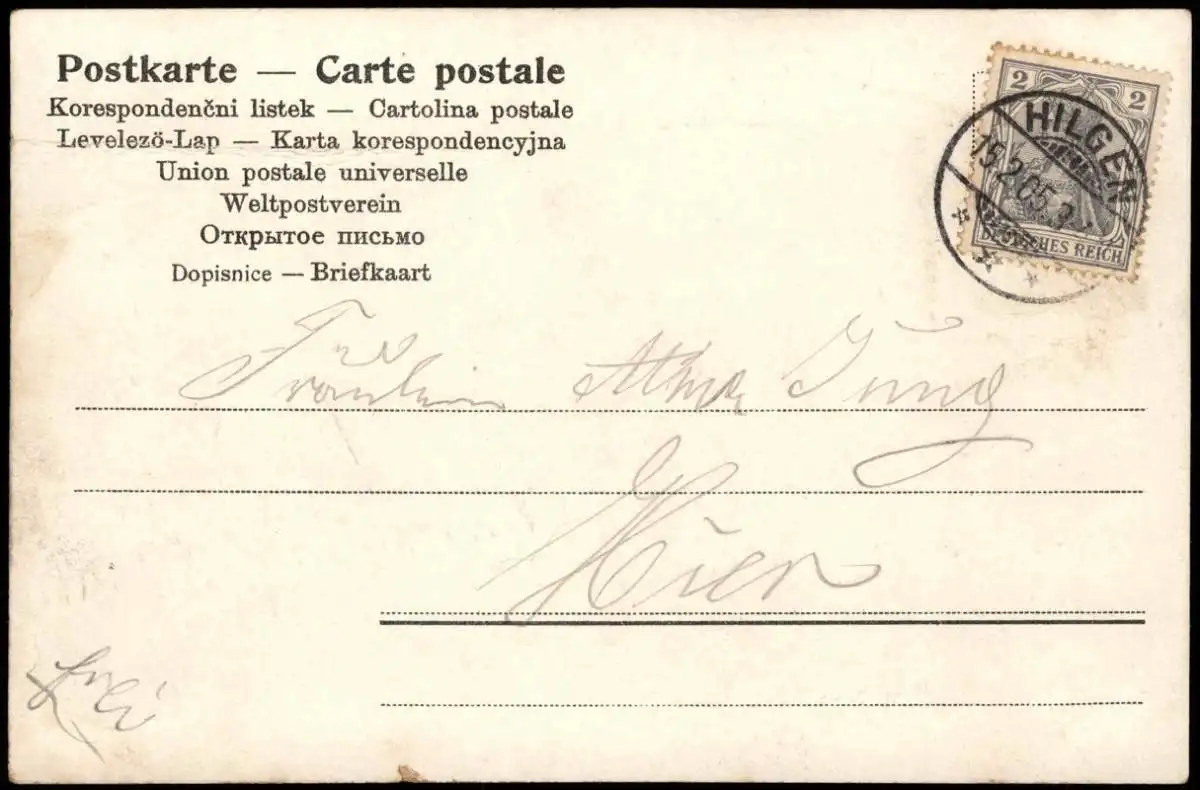 Postkarte — Carte postale
Korespondenčni listek — Cartolina postale
Levelező-Lap — Karta korespondencyjna
Union postale universelle
Weltpostverein
Открытое письмо
Dopisnice — Briefkaart
2 2
HILGEN
15.2.05.
DEUTSCHES REICH
Fräulein Alma Jung
Hier
frei